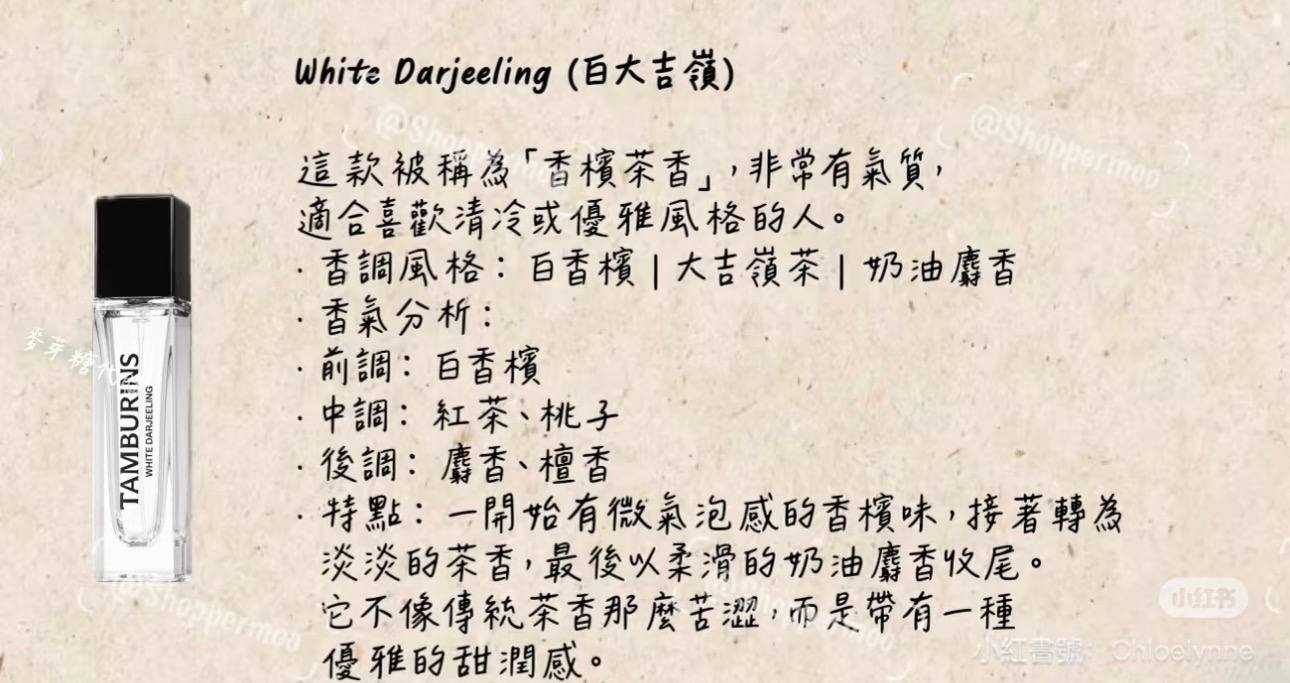 White Darjeeling (白大吉嶺)
@Shoppermoo
@Shoppermoo
這款被稱為「香檳茶香」,非常有氣質,
適合喜歡清冷或優雅風格的人。
· 香調風格: 白香檳 | 大吉嶺茶 | 奶油麝香
· 香氣分析:
· 前調: 白香檳
· 中調: 紅茶、桃子
· 後調: 麝香、檀香
· 特點: 一開始有微氣泡感的香檳味,接著轉為
淡淡的茶香,最後以柔滑的奶油麝香收尾。
它不像傳統茶香那麼苦澀,而是帶有一種
優雅的甜潤感。
TAMBURINS
WHITE DARJEELING
麥芽糖代
@Shoppermoo
小红书
小紅書號: Chloelynne